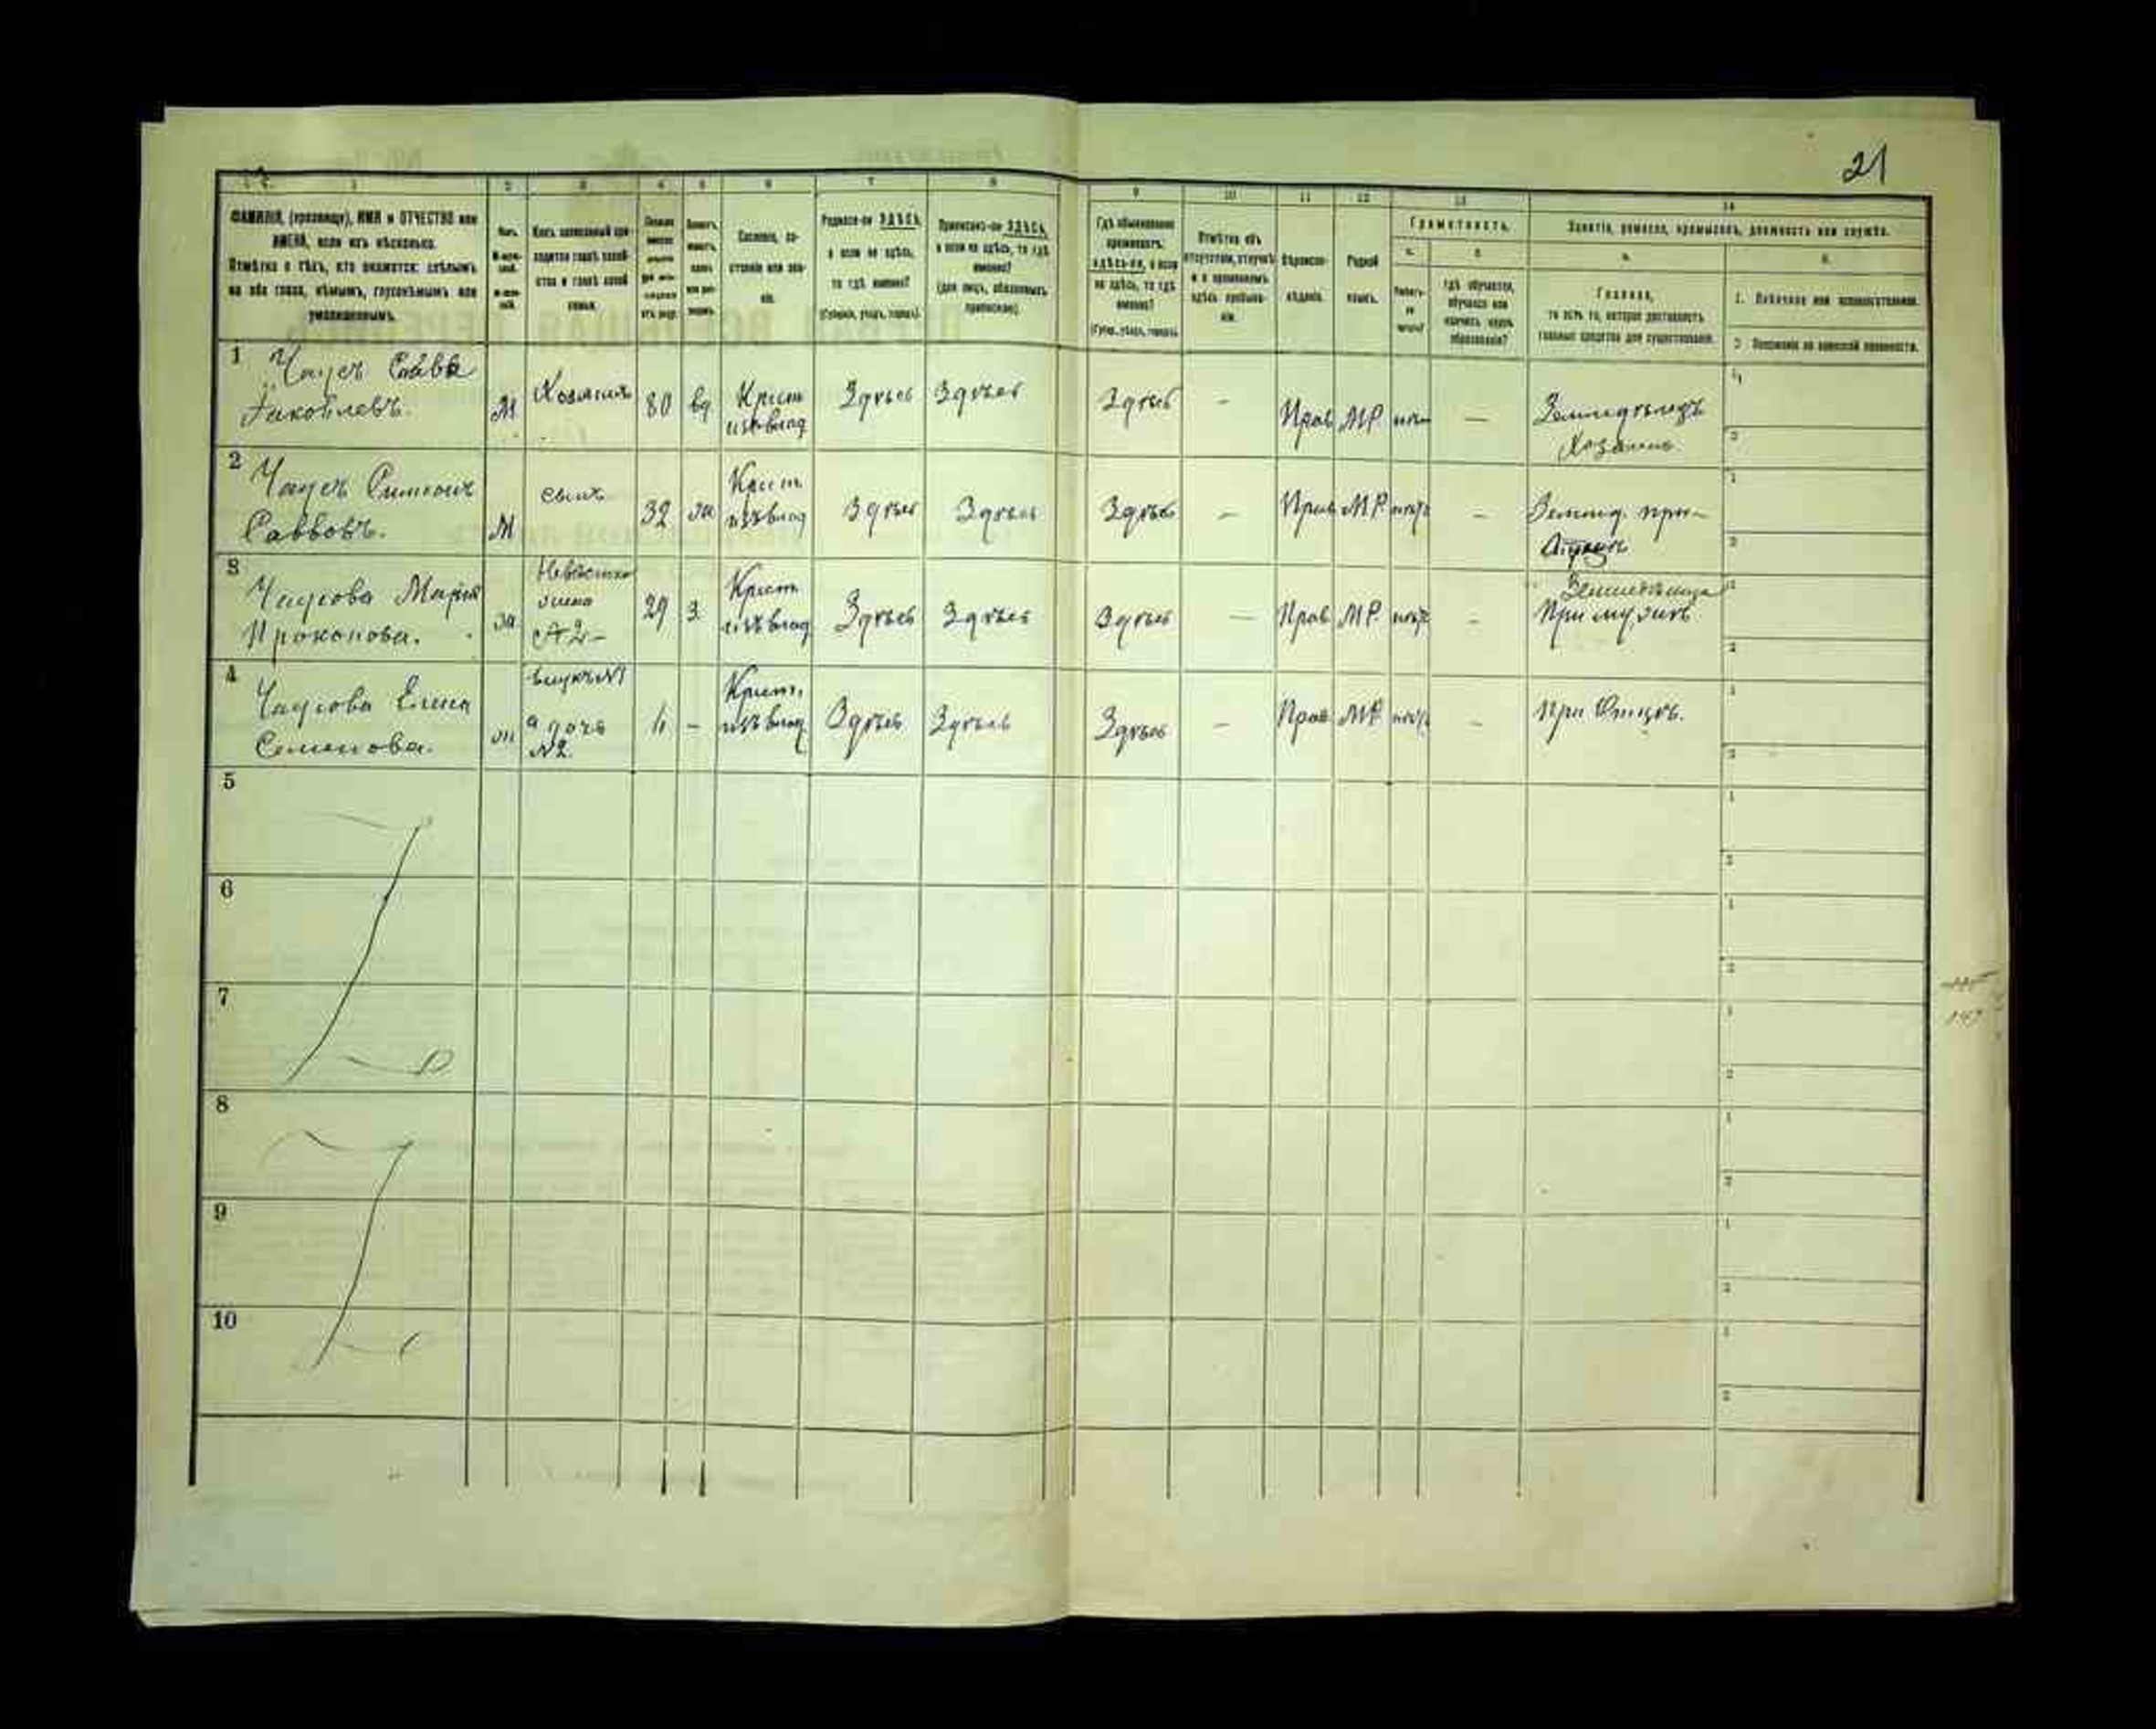 21
1 2 3 4 5 6 7 8 9 10 11 12 13 14
ФАМИЛІЯ, (прозвище), ИМЯ и ОТЧЕСТВО или
ИМЕНА, если ихъ нѣсколько.
Отмѣтка о тѣхъ, кто окажется: слѣпымъ
на оба глаза, нѣмымъ, глухонѣмымъ или
умалишеннымъ.
Сословіе, со-
стояніе или зва-
ніе.
Родился-ли ЗДѢСЬ,
а если не здѣсь,
то гдѣ именно?
(Губернія, уѣздъ, городъ).
Приписанъ-ли ЗДѢСЬ,
а если не здѣсь, то гдѣ
именно?
(для лицъ, обязанныхъ
припискою).
Гдѣ обыкновенно
проживаетъ:
здѣсь-ли, а если
не здѣсь, то гдѣ
именно?
(Губер., уѣздъ, городъ).
Отмѣтка объ
отсутствіи, отлучкѣ
и о временномъ
здѣсь пребыва-
ніи.
Вѣроиспо-
вѣданіе.
Родной
языкъ.
Грамотность.
а. б.
гдѣ обучается,
обучался или
кончилъ курсъ
образованія?
Занятіе, ремесло, промыселъ, должность или служба.
а. б.
Главное,
то есть то, которое доставляетъ
главныя средства для существованія.
1. Побочное или вспомогательное.
2. Положеніе по воинской повинности.
1 Чаусъ Савва
Яковлевъ.
М
Хозяинъ
80
вд
Крест
изъ влад
Здѣсь
Здѣсь
Здѣсь
—
Прав
МР.
нѣтъ
—
Земледѣлецъ
Хозяинъ.
2 Чаусъ Симеонъ
Саввовъ.
М
сынъ
32
Крест
изъ влад
Здѣсь
Здѣсь
Здѣсь
—
Прав
МР.
нѣтъ
—
Землед. при
3 Чаусова Марія
Прокопова.
Невѣстка
жена
№2
29
З.
Крест
изъ влад
Здѣсь
Здѣсь
Здѣсь
—
Прав.
МР.
нѣтъ
—
При мужѣ
4 Чаусова Елена
Семенова.
внучк №1
а дочь
№2.
11
–
Крест.
изъ влад.
Здѣсь
Здѣсь
Здѣсь
—
Прав.
МР.
нѣтъ
—
при Отцѣ.
5
6
7
8
9
10